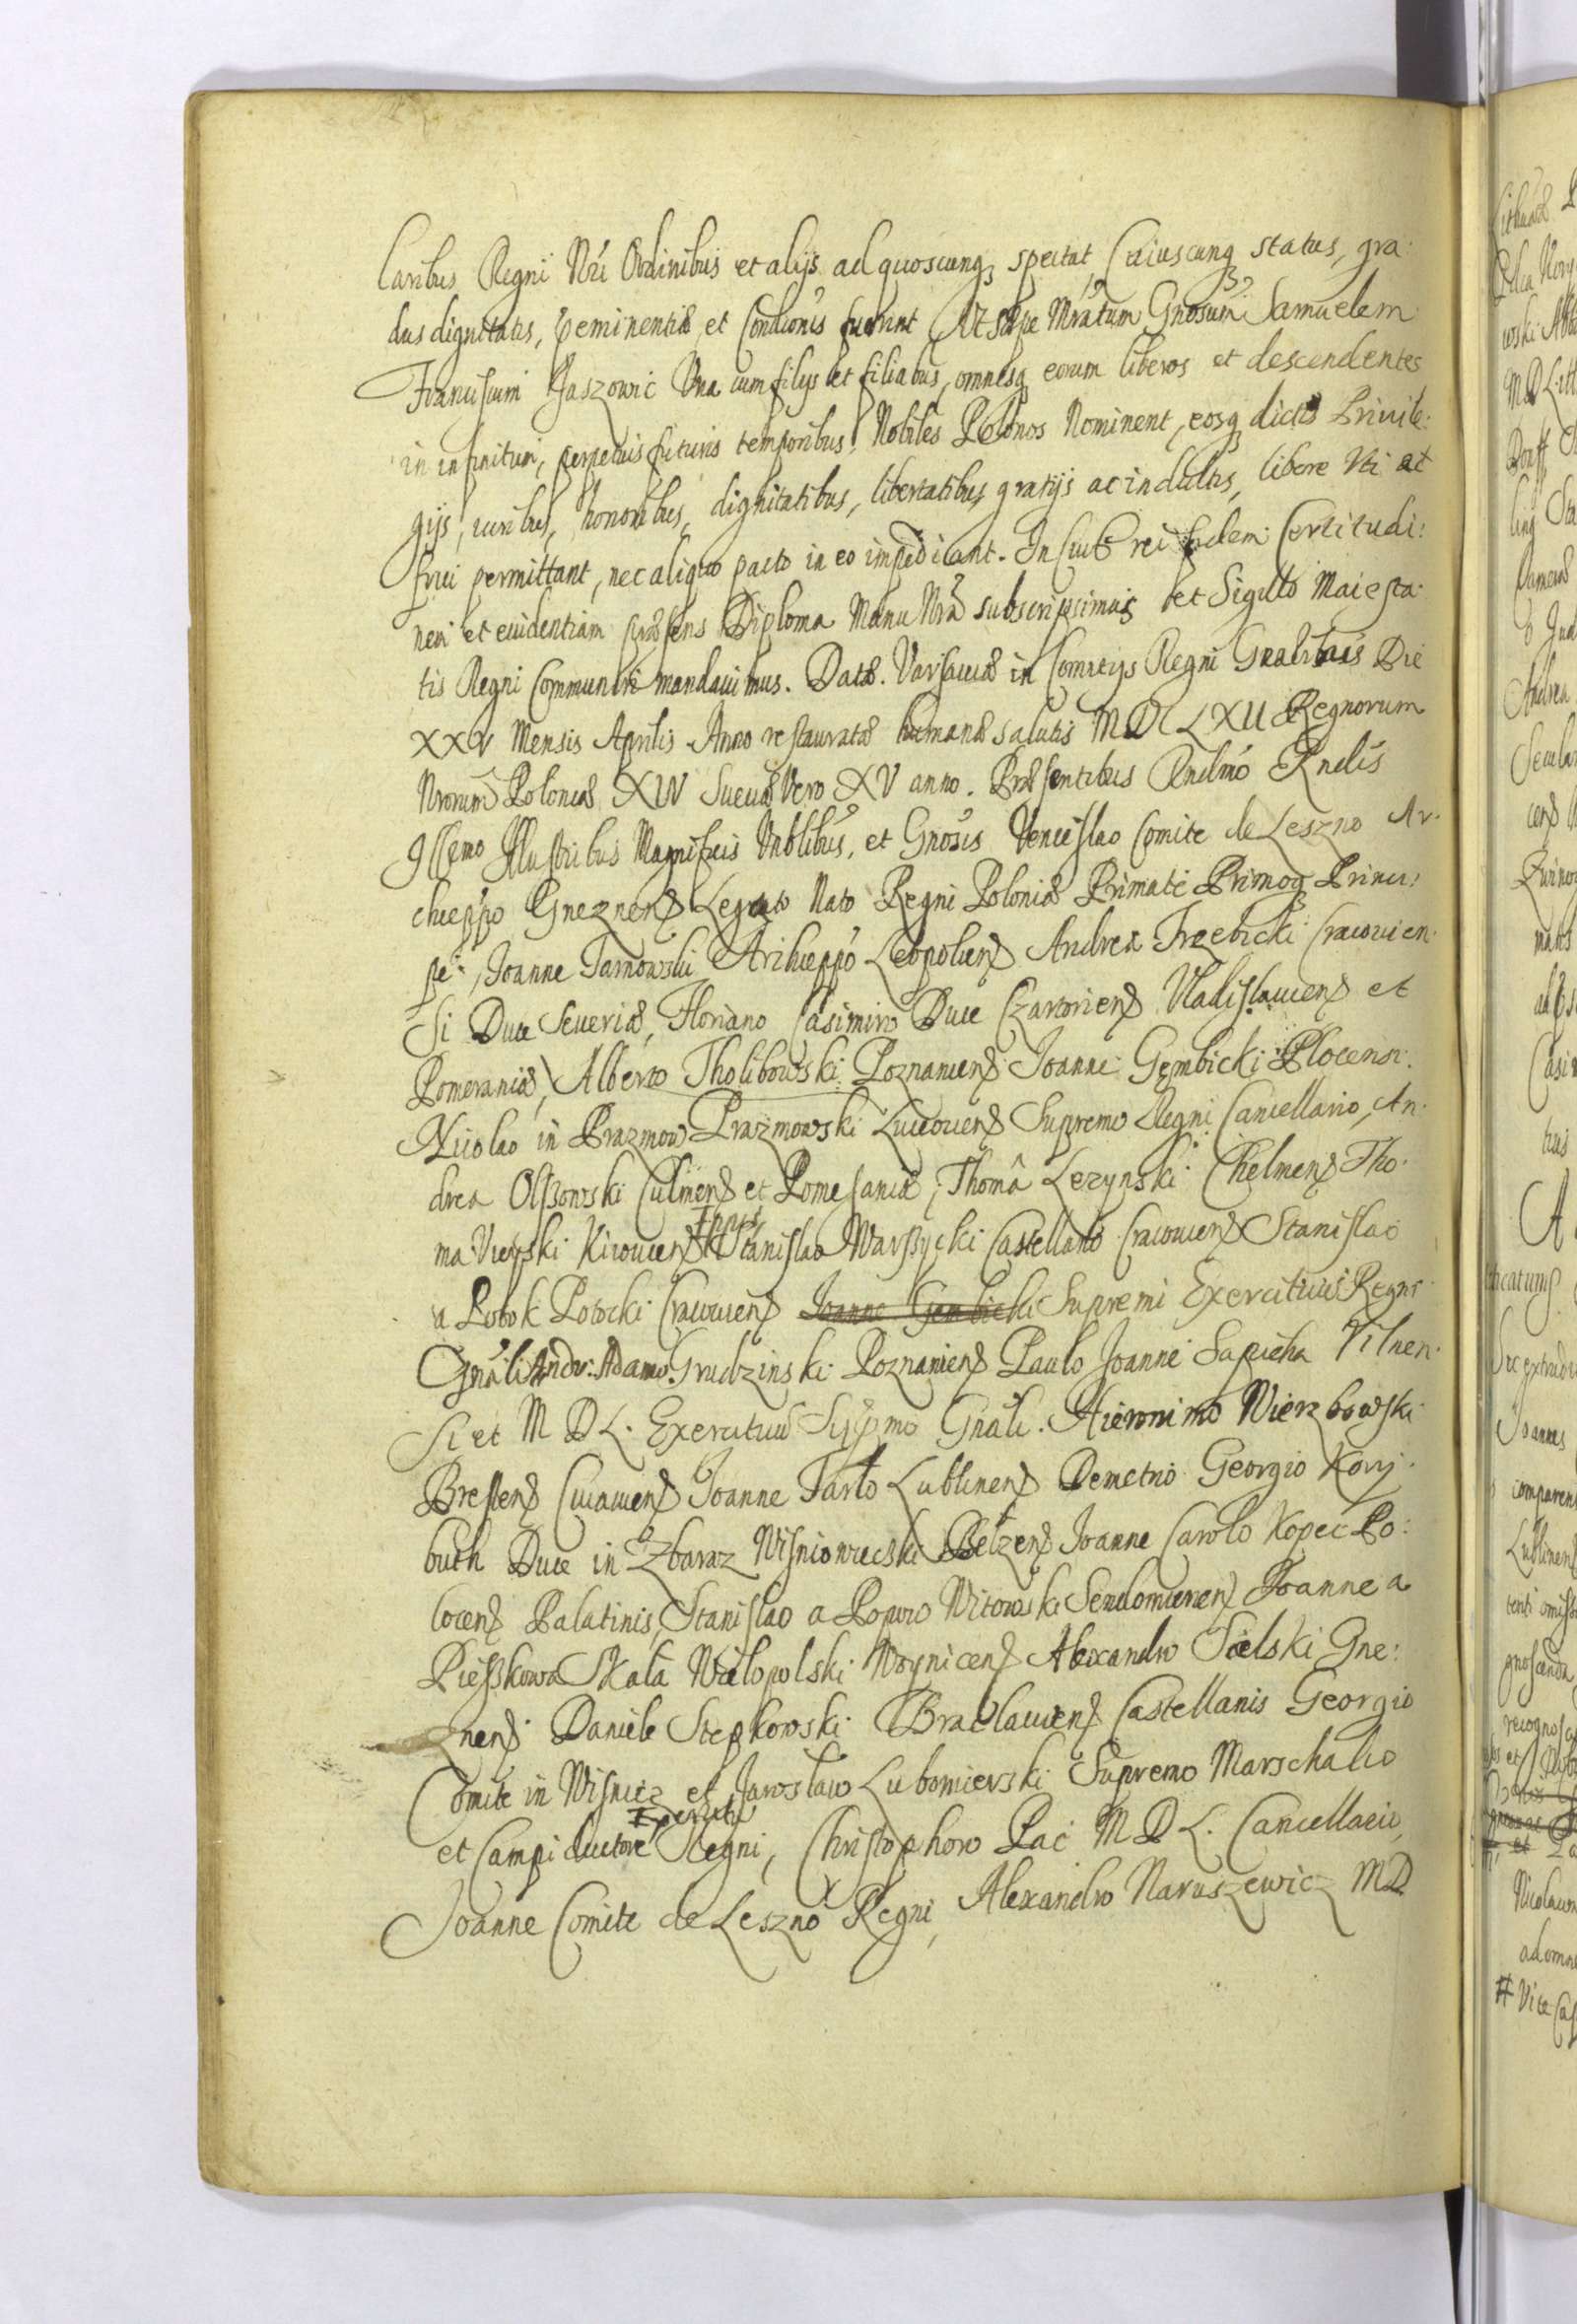 laribus Regni Nri Ordinibus et alijs ad quoscunq, spectat, Cuiuscunq status, gra
dus dignitatis, peminentiæ et Condionis fuerint Vt sæpe Mratum Gnosum Samuelem
Franciscum Jaszowic Una cum filijs et filiabus, omnesq eorum liberos et descendentes
in infinitum, perpetuis futuris temporibus Nobiles Polonos Nominent, eosq dictis Priuile:
gijs, iuribus, honoribus, dignitatibus, libertatibus, gratijs ac indultis, libere Vti at
frui permittant, nec aliquo pacto in eo impediant. In Cuius rei fidem Certitudi:
nem et euidentiam præsens Diploma Manu Nra subscripsimus et Sigillo Maiesta
tis Regni Communiri mandauimus. Datæ. Varsauiæ in Comitijs Regni Gnalibus Die
XXV Mensis Aprilis Anno restauratæ humanæ salutis MDCLXII Regnorum
Nrorum Poloniæ XIV Sueciæ Vero XV anno. Præsentibus Rndmo Rndis
Illmo Illustribus Magnificis Vnblibus, et Gnosis Venceslao Comite de Leszno Ar
chieppo Gneznens Legato Nato Regni Poloniæ Primate Primoq Princi:
pe, Joanne Tarnowski Archieppo Leopoliens Andrea Trzebicki Cracouien
si Duce Seueriæ, Floriano Casimiro Duce Czartoriens Vladislauiens et
Pomeraniæ, Alberto Tholibowski Poznaniens Joanne Gęmbicki Plocensi
Nicolao in Prazmow Prazmowski Luceoriens Supremo Regni Cancellario, An
drea Olszowski Culmens et Pomesaniæ, Thomâ Lezynski Chelmens Tho
ma Vieyski Kiiouiens Eppis Stanislao Warszycki Castellano Cracouiens Stanislao
a Potok Potocki Cracouiens Joanne Gembicki Supremi Exercituus Regni
Gnali Andr: Adamo Grudzinski Poznaniens Paulo Joanne Sapieha Vilnen
si et M D L. Exercituus Suppmo Gnali. Hieronimo Wierzbowski
Brestens Cuiauiens Joanne Tarlo Lublinens Demetrio Georgio Kory
buth Duce in Zbaraz Wisniowiecski Belzens Joanne Carolo Kopec Po:
locens Palatinis, Stanislao a Popowo Witowski Sendomiriens Joanne a
Pieszkowa Skała Wielopolski Woynicens Alexandro Sielski Gne:
znens Daniele Stepkowski Braclauiens Castellanis Georgio
Comite in Wisnicz et Jaroslaw Lubomierski Supremo Marschalco
et Campi ductore Exercituus Regni, Christophoro Pac M D L. Cancellario,
Joanne Comite de Leszno Regni, Alexandro Naruszewicz MD